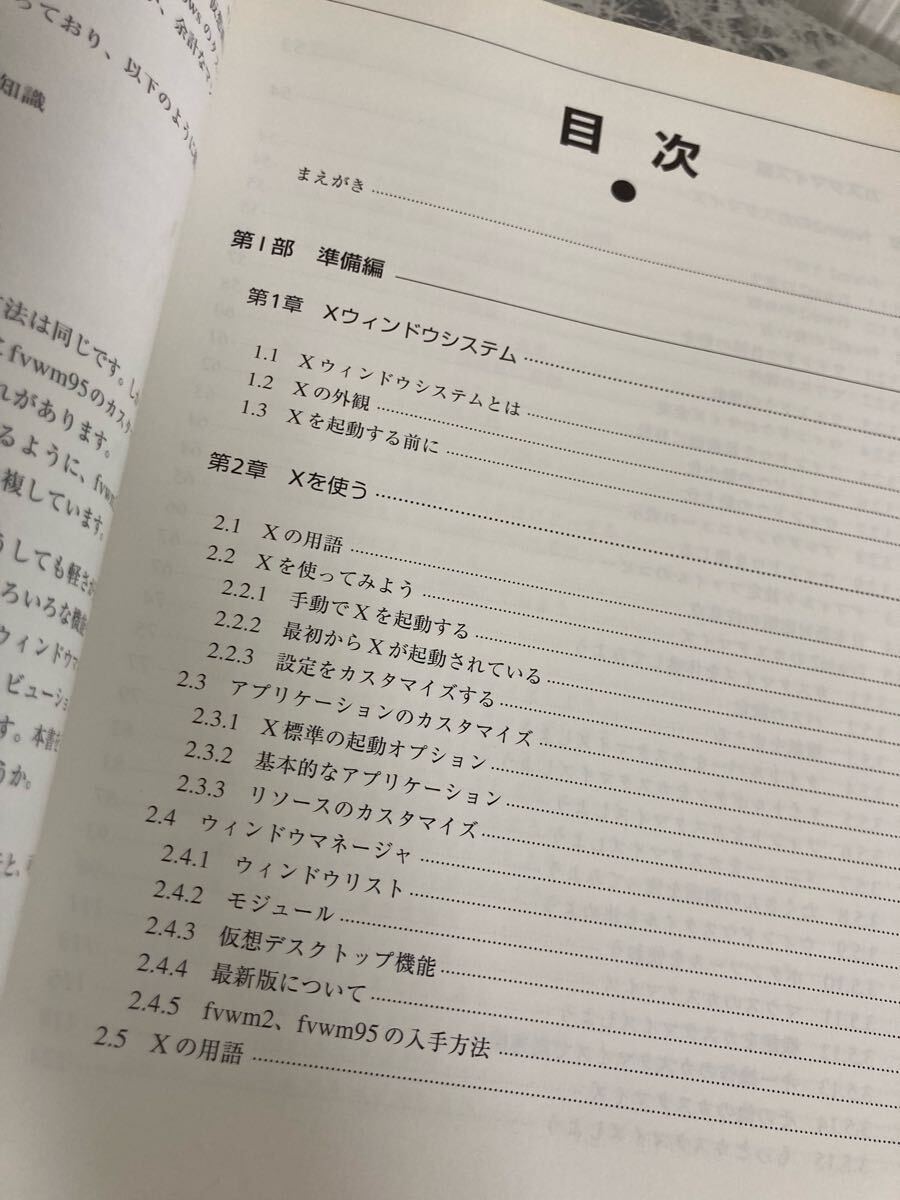 っており、以下のように
知識
方法は同じです。し
fvwm95のカスタ
れがあります。
るように、fvw
複しています。
うしても軽さが
ろいろな機能
ウィンドウマ
ビューショ
す。本書を
うか。
目 次
●
まえがき
第I部 準備編
第1章 Xウィンドウシステム
1.1 Xウィンドウシステムとは
1.2 Xの外観
1.3 Xを起動する前に
第2章 Xを使う
2.1 Xの用語
2.2 Xを使ってみよう
2.2.1 手動でXを起動する
2.2.2 最初からXが起動されている
2.2.3 設定をカスタマイズする
2.3 アプリケーションのカスタマイズ
2.3.1 X標準の起動オプション
2.3.2 基本的なアプリケーション
2.3.3 リソースのカスタマイズ
2.4 ウィンドウマネージャ
2.4.1 ウィンドウリスト
2.4.2 モジュール
2.4.3 仮想デスクトップ機能
2.4.4 最新版について
2.4.5 fvwm2、fvwm95の入手方法
2.5 Xの用語